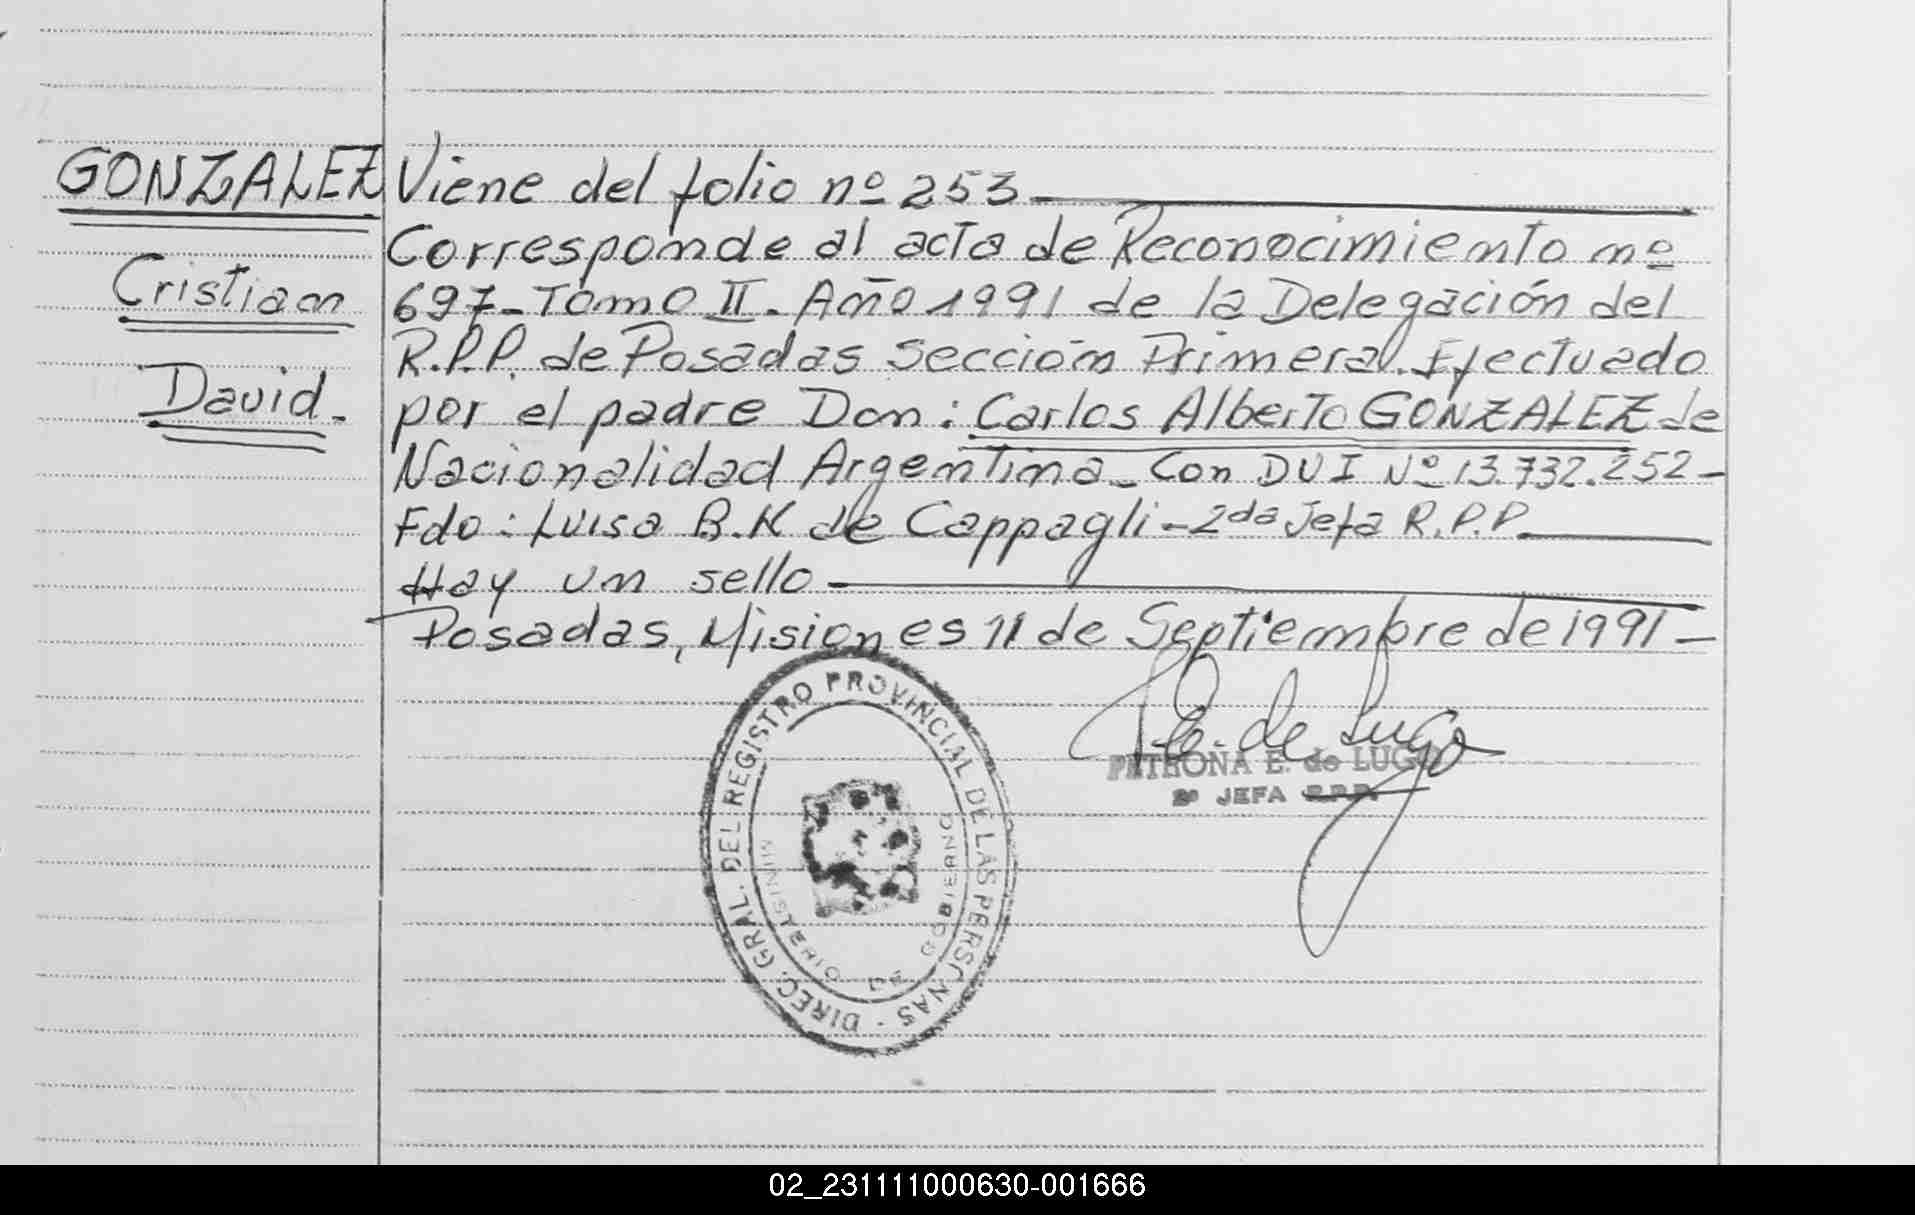 GONZALEZ
Cristian
David.
Viene del folio nº 253
Corresponde al acta de Reconocimiento nº
697-Tomo II. Año 1991 de la Delegación del
R.P.P. de Posadas Sección Primera. Efectuado
por el padre Don: Carlos Alberto GONZALEZ de
Nacionalidad Argentina- Con DUI Nº 13.732.252-
Fdo: Luisa B.K de Cappagli-2da Jefa R.P.P.
Hay un sello
Posadas, Misiones 11 de Septiembre de 1991-
DIREC. GRAL. DEL REGISTRO PROVINCIAL DE LAS PERSONAS -
MINISTERIO DE GOBIERNO
E. de Lugo
PETRONA E. de LUGO
2º JEFA R.P.P.
02_231111000630-001666